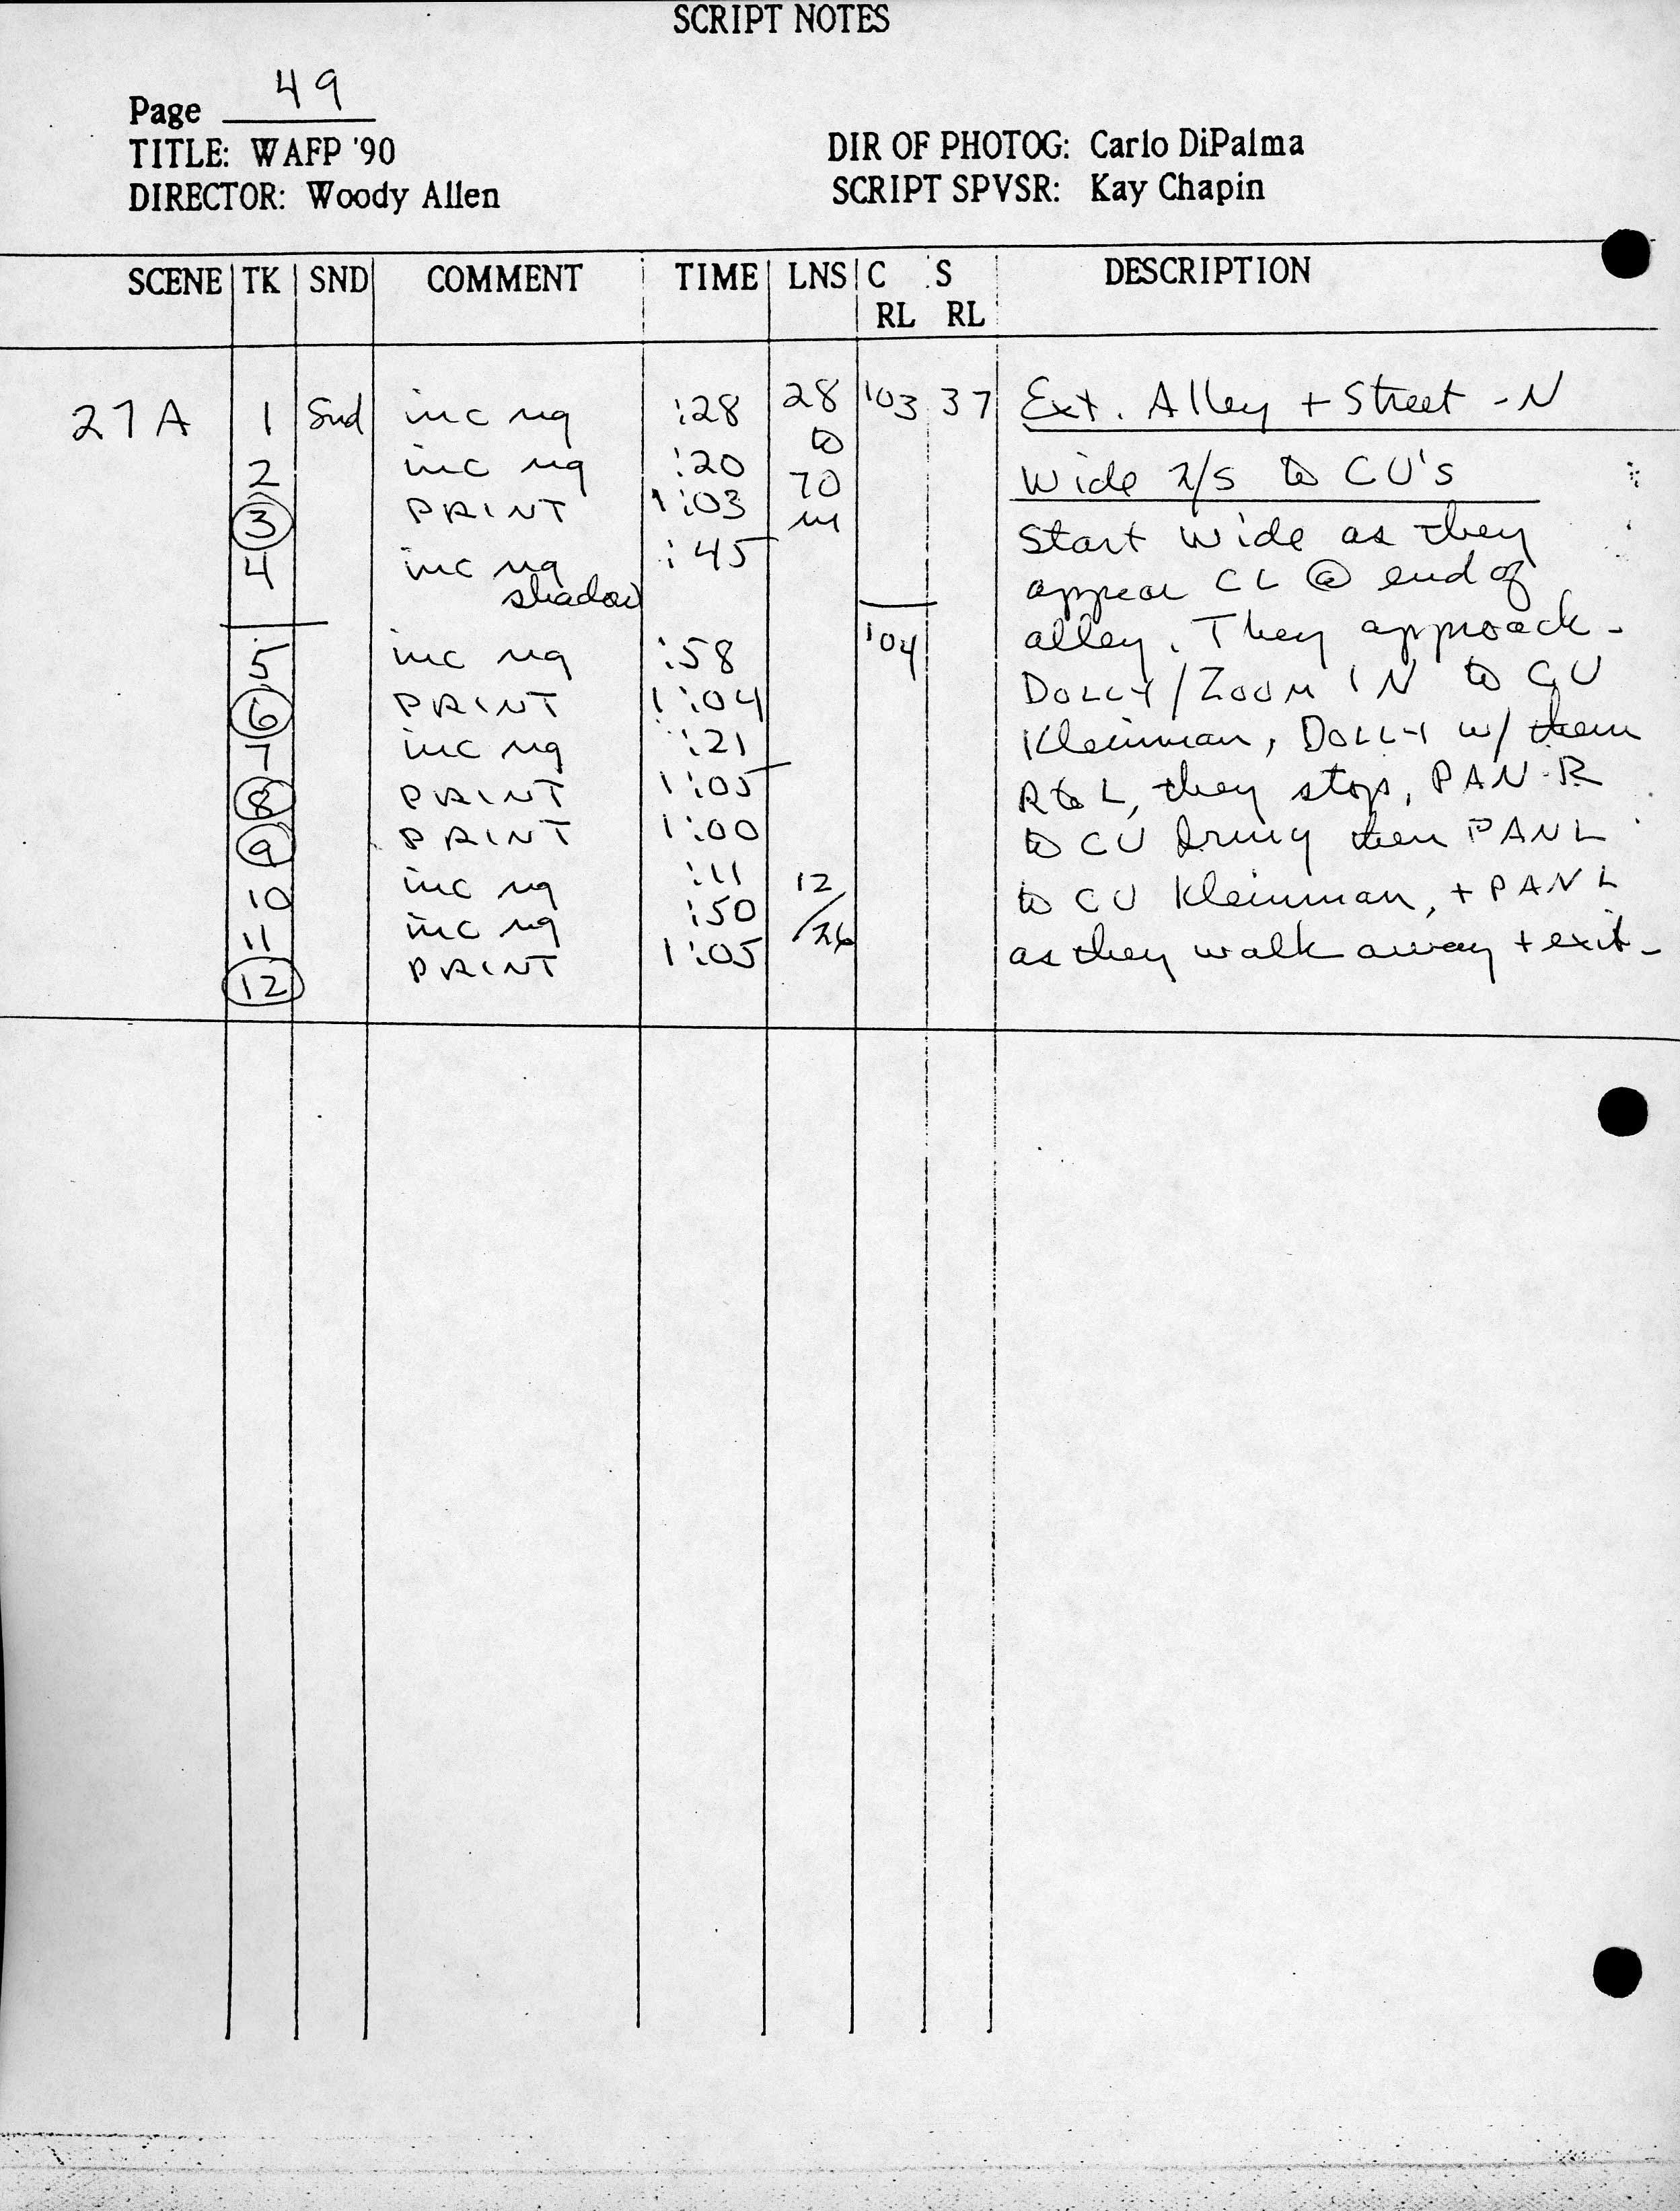 SCRIPT NOTES
Page 49
TITLE: WAFP '90
DIRECTOR: Woody Allen
DIR OF PHOTOG: Carlo DiPalma
SCRIPT SPVSR: Kay Chapin
SCENE TK SND COMMENT TIME LNS C RL S RL DESCRIPTION
27A 1 Snd inc ng :28 28 '03 37 Ext. Alley + Street - N
to
2 inc ng :20 70 Wide 2/s to CU's
3 PRINT 1:03 m Start wide as they
4 inc ng :45 appear CL @ end of
shadow
5 inc ng :58 '04 alley. They approach -
6 PRINT 1:04 DOLLY/ZOOM IN to CU
7 inc ng :21 Kleinman, DOLLY w/ them
8 PRINT 1:05 R to L, they stop, PAN R
9 PRINT 1:00 to CU Irmy then PAN L
10 inc ng :11 12 to CU Kleinman, + PAN L
11 inc ng :50 /26 as they walk away + exit -
12 PRINT 1:05